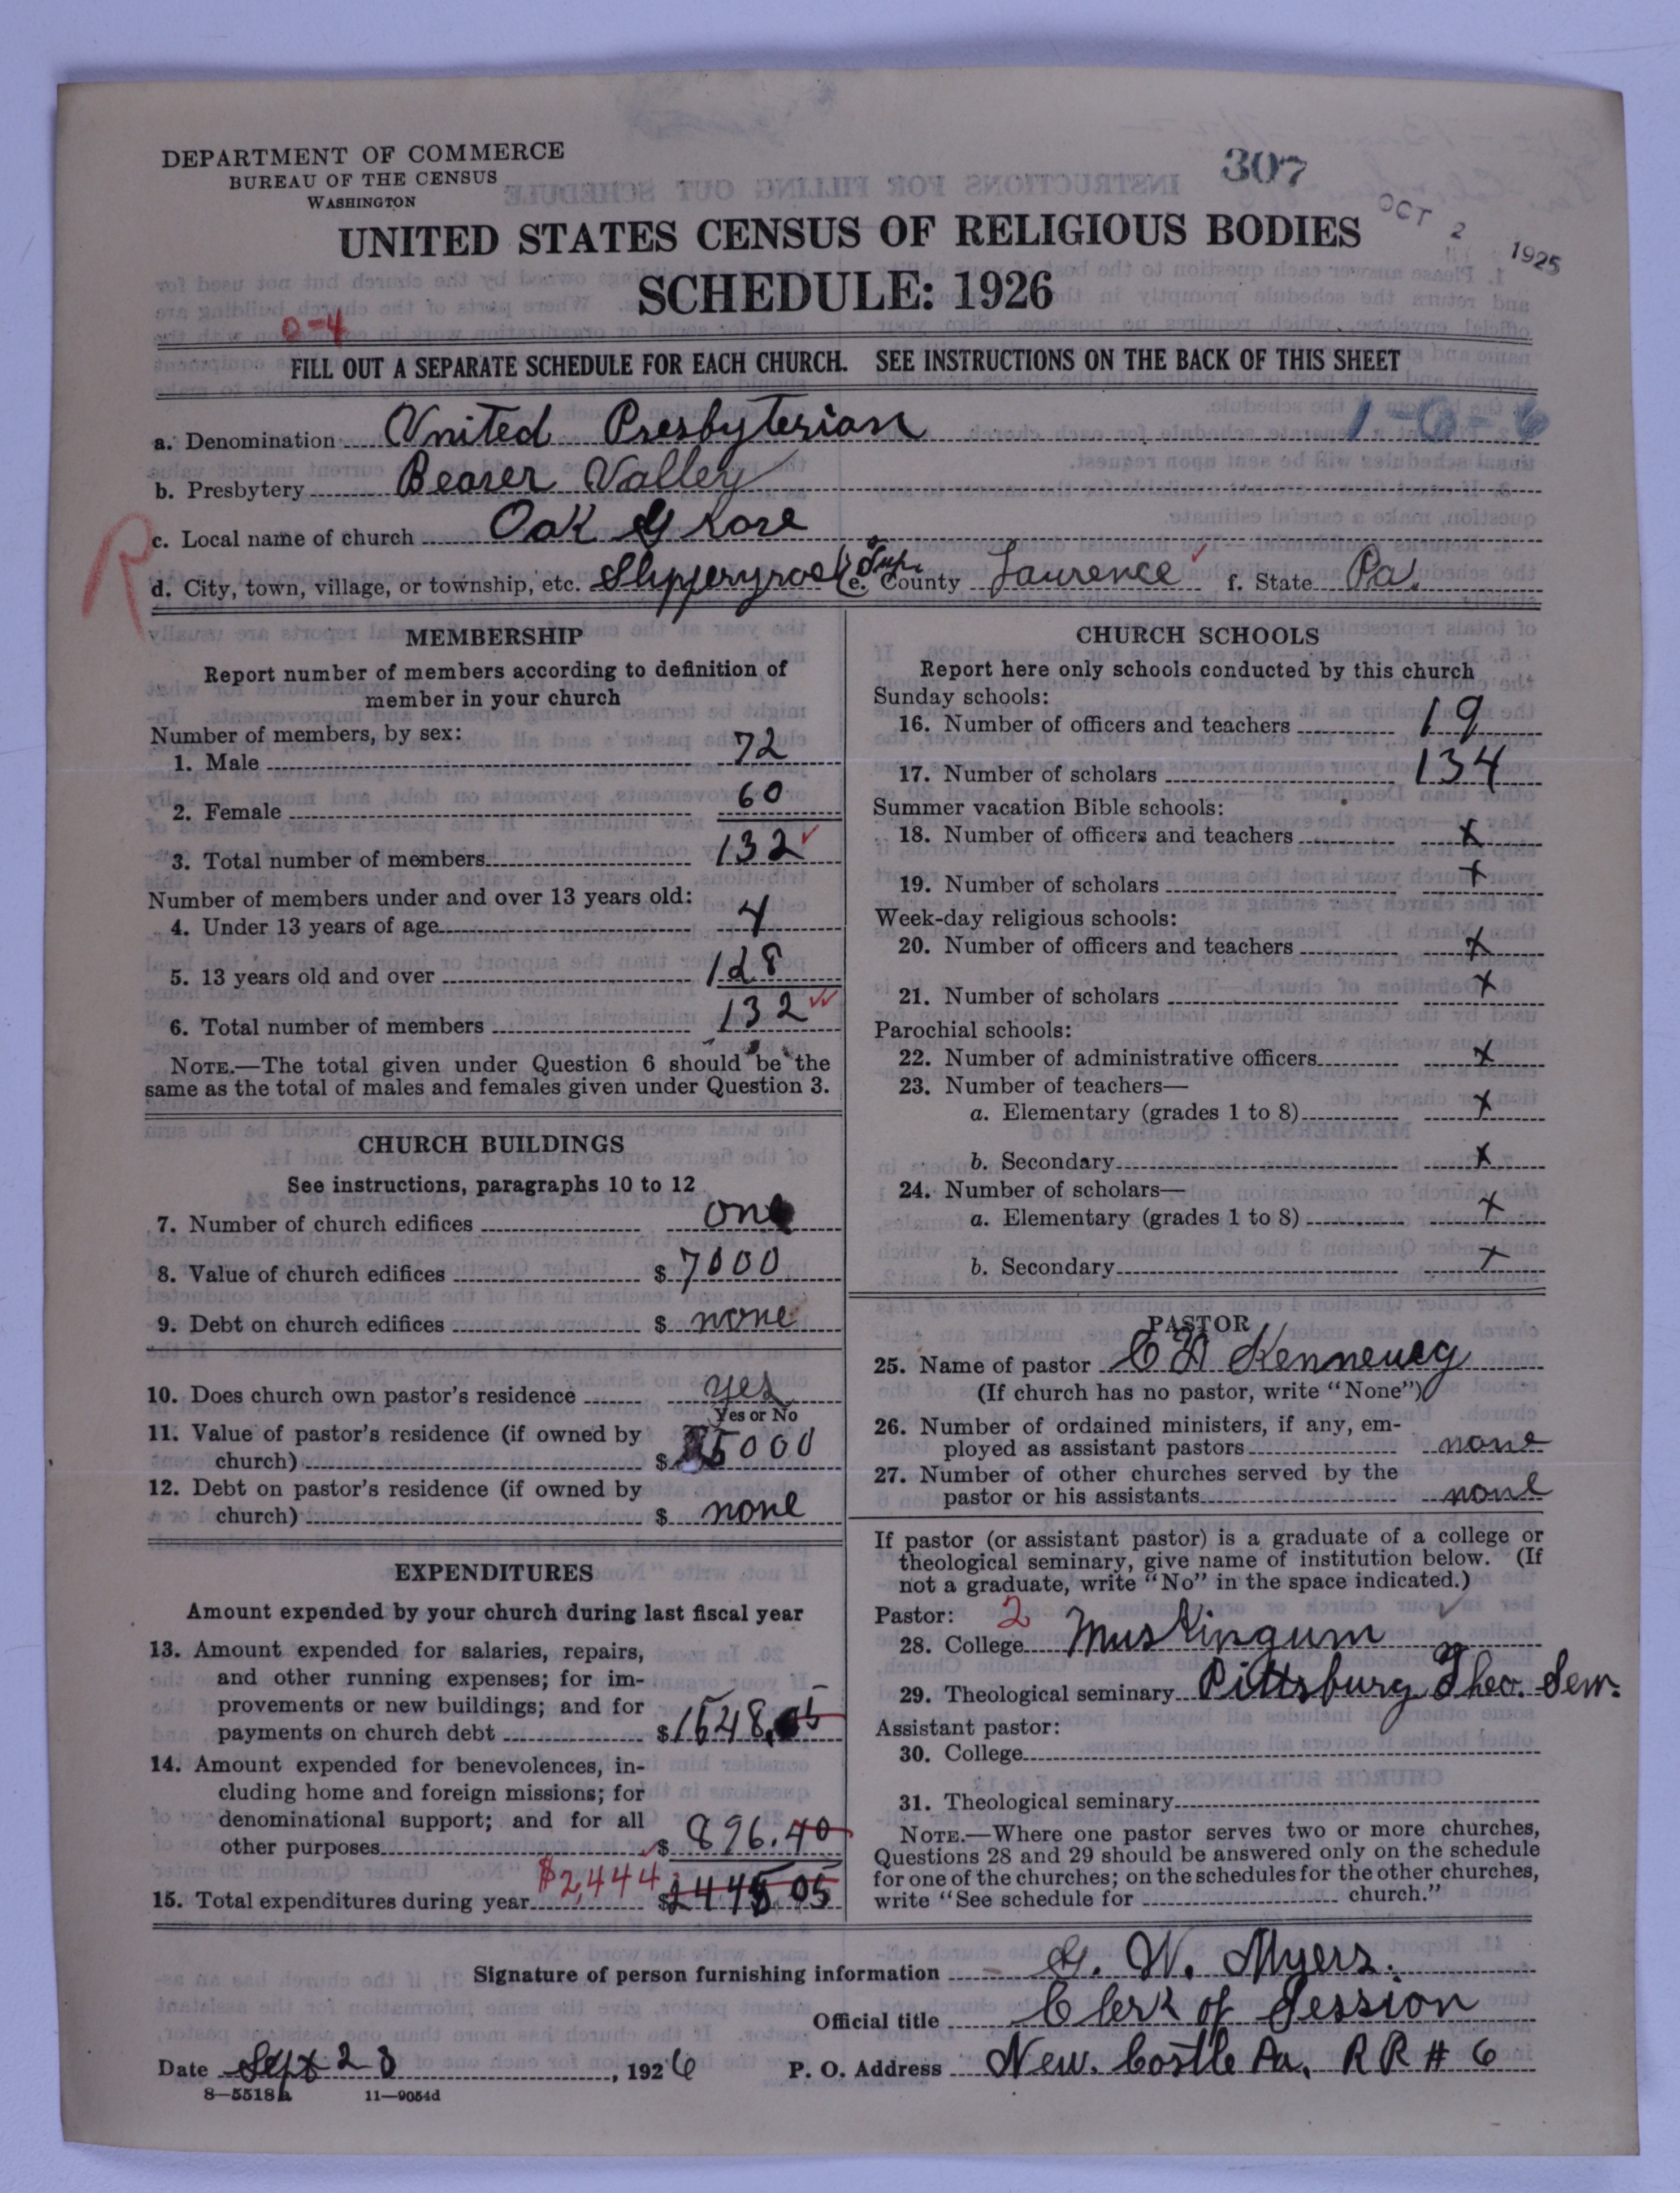 DEPARTMENT OF COMMERCE
BUREAU OF THE CENSUS
WASHINGTON
307
OCT 2 1925
UNITED STATES CENSUS OF RELIGIOUS BODIES
SCHEDULE: 1926
0-4
FILL OUT A SEPARATE SCHEDULE FOR EACH CHURCH. SEE INSTRUCTIONS ON THE BACK OF THIS SHEET
1-6-6
a. Denomination United Presbyterian
b. Presbytery Beaver Valley
R
c. Local name of church Oak Grove
d. City, town, village, or township, etc. Slipperyrock Twp. e. County Lawrence f. State Pa.
MEMBERSHIP
Report number of members according to definition of
member in your church
Number of members, by sex:
1. Male 72
2. Female 60
3. Total number of members 132
Number of members under and over 13 years old:
4. Under 13 years of age 4
5. 13 years old and over 128
6. Total number of members 132
NOTE.—The total given under Question 6 should be the
same as the total of males and females given under Question 3.
CHURCH BUILDINGS
See instructions, paragraphs 10 to 12
7. Number of church edifices one
8. Value of church edifices $ 7000
9. Debt on church edifices $ none
10. Does church own pastor's residence yes
Yes or No
11. Value of pastor's residence (if owned by
church) $ 5000
12. Debt on pastor's residence (if owned by
church) $ none
EXPENDITURES
Amount expended by your church during last fiscal year
13. Amount expended for salaries, repairs,
and other running expenses; for im-
provements or new buildings; and for
payments on church debt $ 1548.05
14. Amount expended for benevolences, in-
cluding home and foreign missions; for
denominational support; and for all
other purposes $ 896.40
15. Total expenditures during year $2,444 $ 2445 05
CHURCH SCHOOLS
Report here only schools conducted by this church
Sunday schools:
16. Number of officers and teachers 19
17. Number of scholars 134
Summer vacation Bible schools:
18. Number of officers and teachers x
19. Number of scholars x
Week-day religious schools:
20. Number of officers and teachers x
21. Number of scholars x
Parochial schools:
22. Number of administrative officers x
23. Number of teachers—
a. Elementary (grades 1 to 8) x
b. Secondary x
24. Number of scholars—
a. Elementary (grades 1 to 8) x
b. Secondary x
PASTOR
25. Name of pastor C D
(If church has no pastor, write "None")
26. Number of ordained ministers, if any, em-
ployed as assistant pastors none
27. Number of other churches served by the
pastor or his assistants none
If pastor (or assistant pastor) is a graduate of a college or
theological seminary, give name of institution below. (If
not a graduate, write "No" in the space indicated.)
Pastor: 2
28. College Muskingum
29. Theological seminary Pittsburg Theo. Sem.
Assistant pastor:
30. College
31. Theological seminary
NOTE.—Where one pastor serves two or more churches,
Questions 28 and 29 should be answered only on the schedule
for one of the churches; on the schedules for the other churches,
write "See schedule for church."
Signature of person furnishing information G. W. Myers.
Official title Clerk of Session
Date Sept 23, 1926 P. O. Address New. Castle Pa. R R # 6
8—5518a 11—9054d